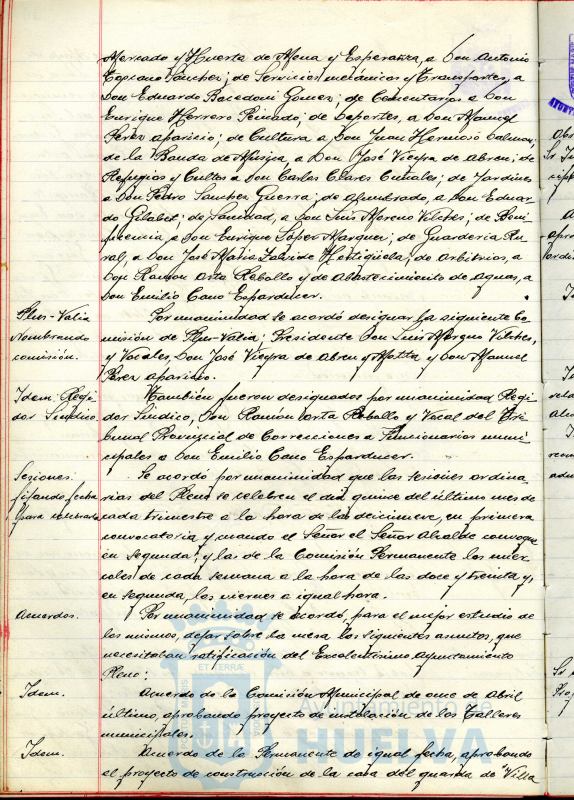 Mercado y Huerta de Mena y Esperanza, a Don Antonio
Toscano Sanchez; de Servicios mecánicos y Transportes, a
Don Eduardo Bacedoni Gomez; de Cementerios a Don
Enrique Herrero Penado; de Deportes, a Don Manuel
Perez aparicio; de Cultura a Don Juan Hermoso
de la Banda de Música, a Don José Vieyra de Abreu; de
Refugios y Cultos a Don Carlos Clares; de Jardines
a Don Pedro Sanchez Guerra; de alumbrado, a Don Eduar-
do Gilabet; de Sanidad, a Don Luis Moreno Vilches; de Beni-
ficencia a Don Enrique López Marquez; de Guarderia Ru-
ral, a Don José Maria; de Arbitrios, a
Don Ramón Orta Rebollo y de Abastecimiento de Aguas, a
Don Emilio Cano Esparducer.
Plus-Valia
Nombrando
comisión.
Por unanimidad se acordó designar la siguiente Co-
misión de Plus-Valia; Presidente Don Luis Moreno Vilches,
y Vocales, Don José Vieyra de Abreu y Motta y Don Manuel
Perez aparicio.
Idem. Regi-
dor Sindico
También fueron designados por unanimidad Regi-
dor Síndico, Don Ramón Orta Rebollo y Vocal del Tri-
bunal Provincial de Correcciones a Funcionarios muni-
cipales a Don Emilio Cano Esparducer.
Sesiones:
fijando fecha
para celebrarlas
Se acordó por unanimidad que las sesiones ordina-
rias del Pleno se celebren el dia quince del último mes de
cada trimestre a la hora de las diecinueve, en primera
convocatoria y cuando el Señor el Señor Alcalde convoque
en segunda; y las de la Comisión Permanente los miér-
coles de cada semana a la hora de las doce y treinta y,
en segunda, los viernes a igual hora.
Acuerdos.
Por unanimidad se acordó, para el mejor estudio de
los mismos, dejar sobre la mesa los siguientes asuntos, que
necesitaban ratificación del Excelentísimo Ayuntamiento
Pleno:
Idem.
Acuerdo de la Comisión Municipal de once de Abril
último, aprobando proyecto de instalación de los Talleres
municipales.
Idem.
Acuerdo de la Permanente de igual fecha, aprobando
el proyecto de construcción de la casa del guarda de "Villa
Ayuntamiento de
HUELVA